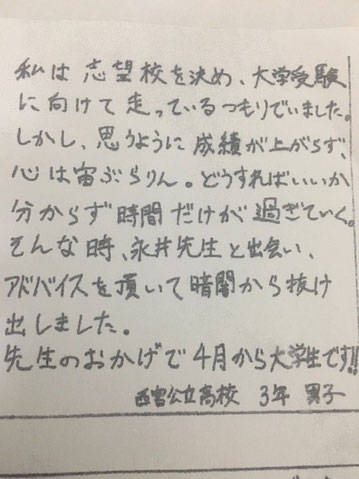 私は志望校を決め、大学受験
に向けて走っているつもりでいました。
しかし、思うように成績が上がらず、
心は宙ぶらりん。どうすればいいか
分からず時間だけが過ぎていく。
そんな時、永井先生と出会い、
アドバイスを頂いて暗闇から抜け
出しました。
先生のおかげで4月から大学生です!!
西宮公立高校 3年 男子